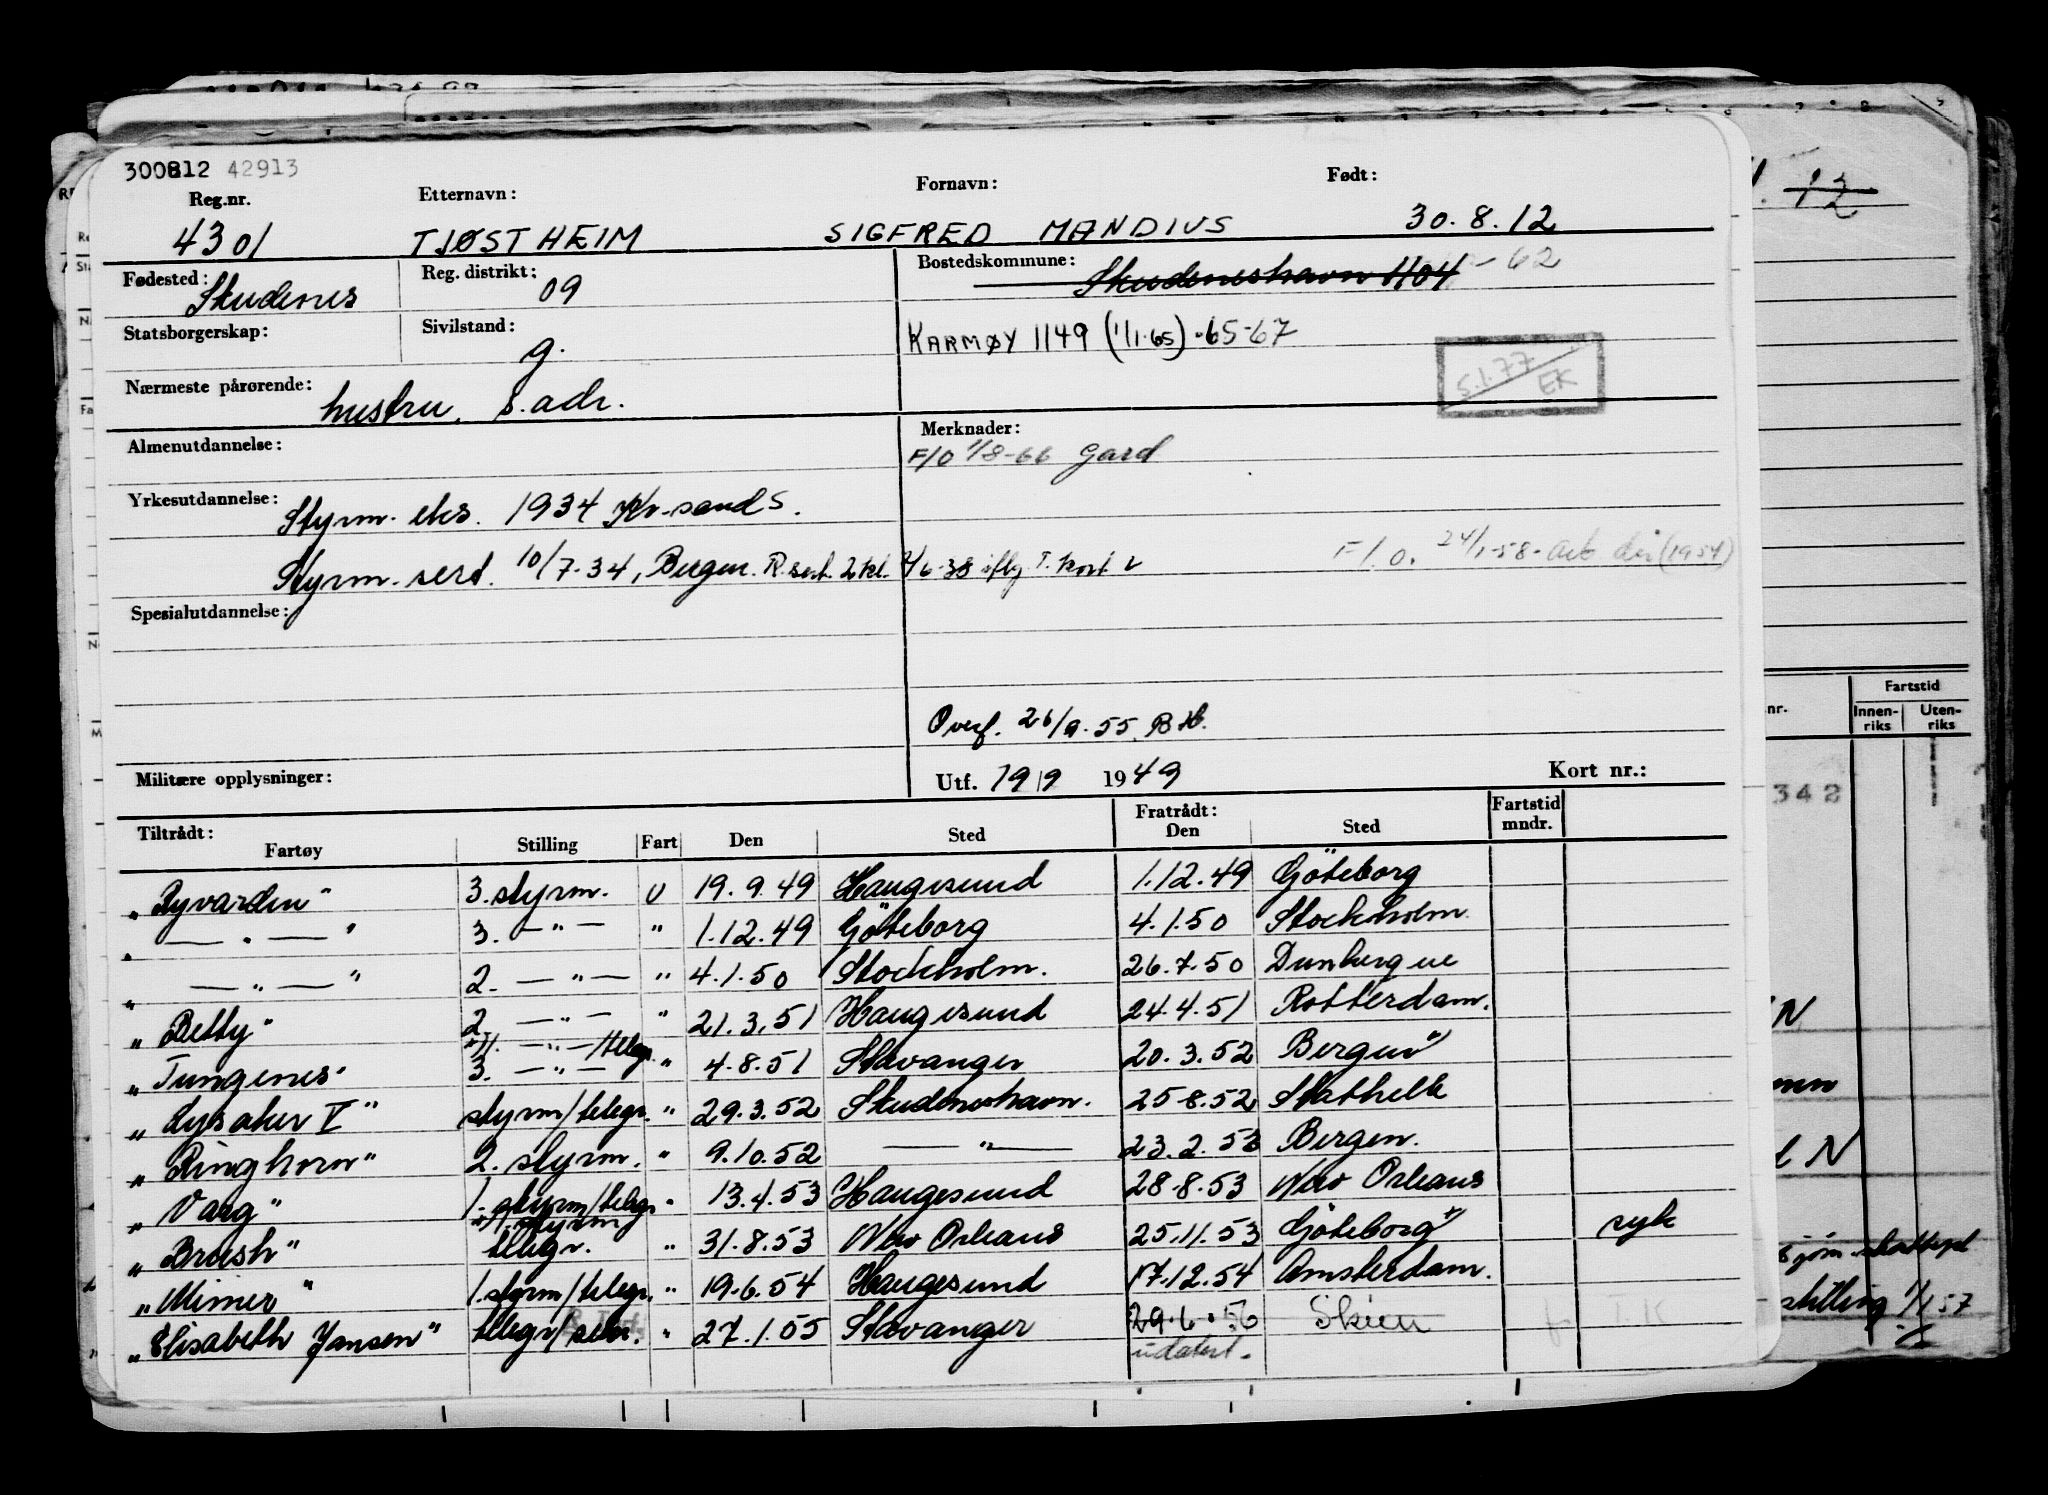 300812 42913
Reg.nr. Etternavn: Fornavn: Født:
4301 TJØSTHEIM SIGFRED MANDIUS 30.8.12
Fødested: Skudenes Reg. distrikt: 09 Bostedskommune: Skudeneshavn 1104 - 62
Statsborgerskap: Sivilstand: g. KARMØY 1149 (1/1-65) -65-67
S.1.77 EK
Nærmeste pårørende: hustru, s. adr.
Almenutdannelse: Merknader:
F/O 1/8-66 Gard
Yrkesutdannelse: Styrm. eks. 1934 Kr-sand S.
Styrm. sert. 10/7-34, Bergen. R.sert. 2 kl. 2/6-38 iflg. T. kort
F/O. 24/1-58
Spesialutdannelse:
Overf. 26/9-55. B.H.
Militære opplysninger: Utf. 19/9 1949 Kort nr.:
Tiltrådt: Fartøy Stilling Fart Den Sted Fratrådt: Den Sted Fartstid mndr.
"Ryvarden" 3. styrm. U 19.9.49 Haugesund 1.12.49 Göteborg
— " — " 3. — " — " 1.12.49 Göteborg 4.1.50 Stockholm.
" — " — " 2. — " — " 4.1.50 Stockholm. 26.7.50 Dunkerque
"Betty" 2. — " — " 21.3.51 Haugesund 24.4.51 Rotterdam.
"Tungenes" 3. — " — /telegr. " 4.8.51 Stavanger 20.3.52 Bergen
"Lysaker V" styrm/telegr. " 29.3.52 Skudeneshavn. 25.8.52 Stathelle
"Ringhorn" 2. styrm. " 9.10.52 — " — 23.2.53 Bergen.
"Varg" 1. styrm/telegr " 13.4.53 Haugesund 28.8.53 New Orleans
"Brush" styrm telegr. " 31.8.53 New Orleans 25.11.53 Göteborg syk
"Mimer" 1. styrm/telegr. " 19.6.54 Haugesund 17.12.54 Amsterdam.
"Elisabeth Jansen" telegr/sekr. " 27.1.55 Stavanger 29.6.56 Skien T.K
udatert.
Fartstid
Innen-riks Uten-riks
342
stilling 1/1 57